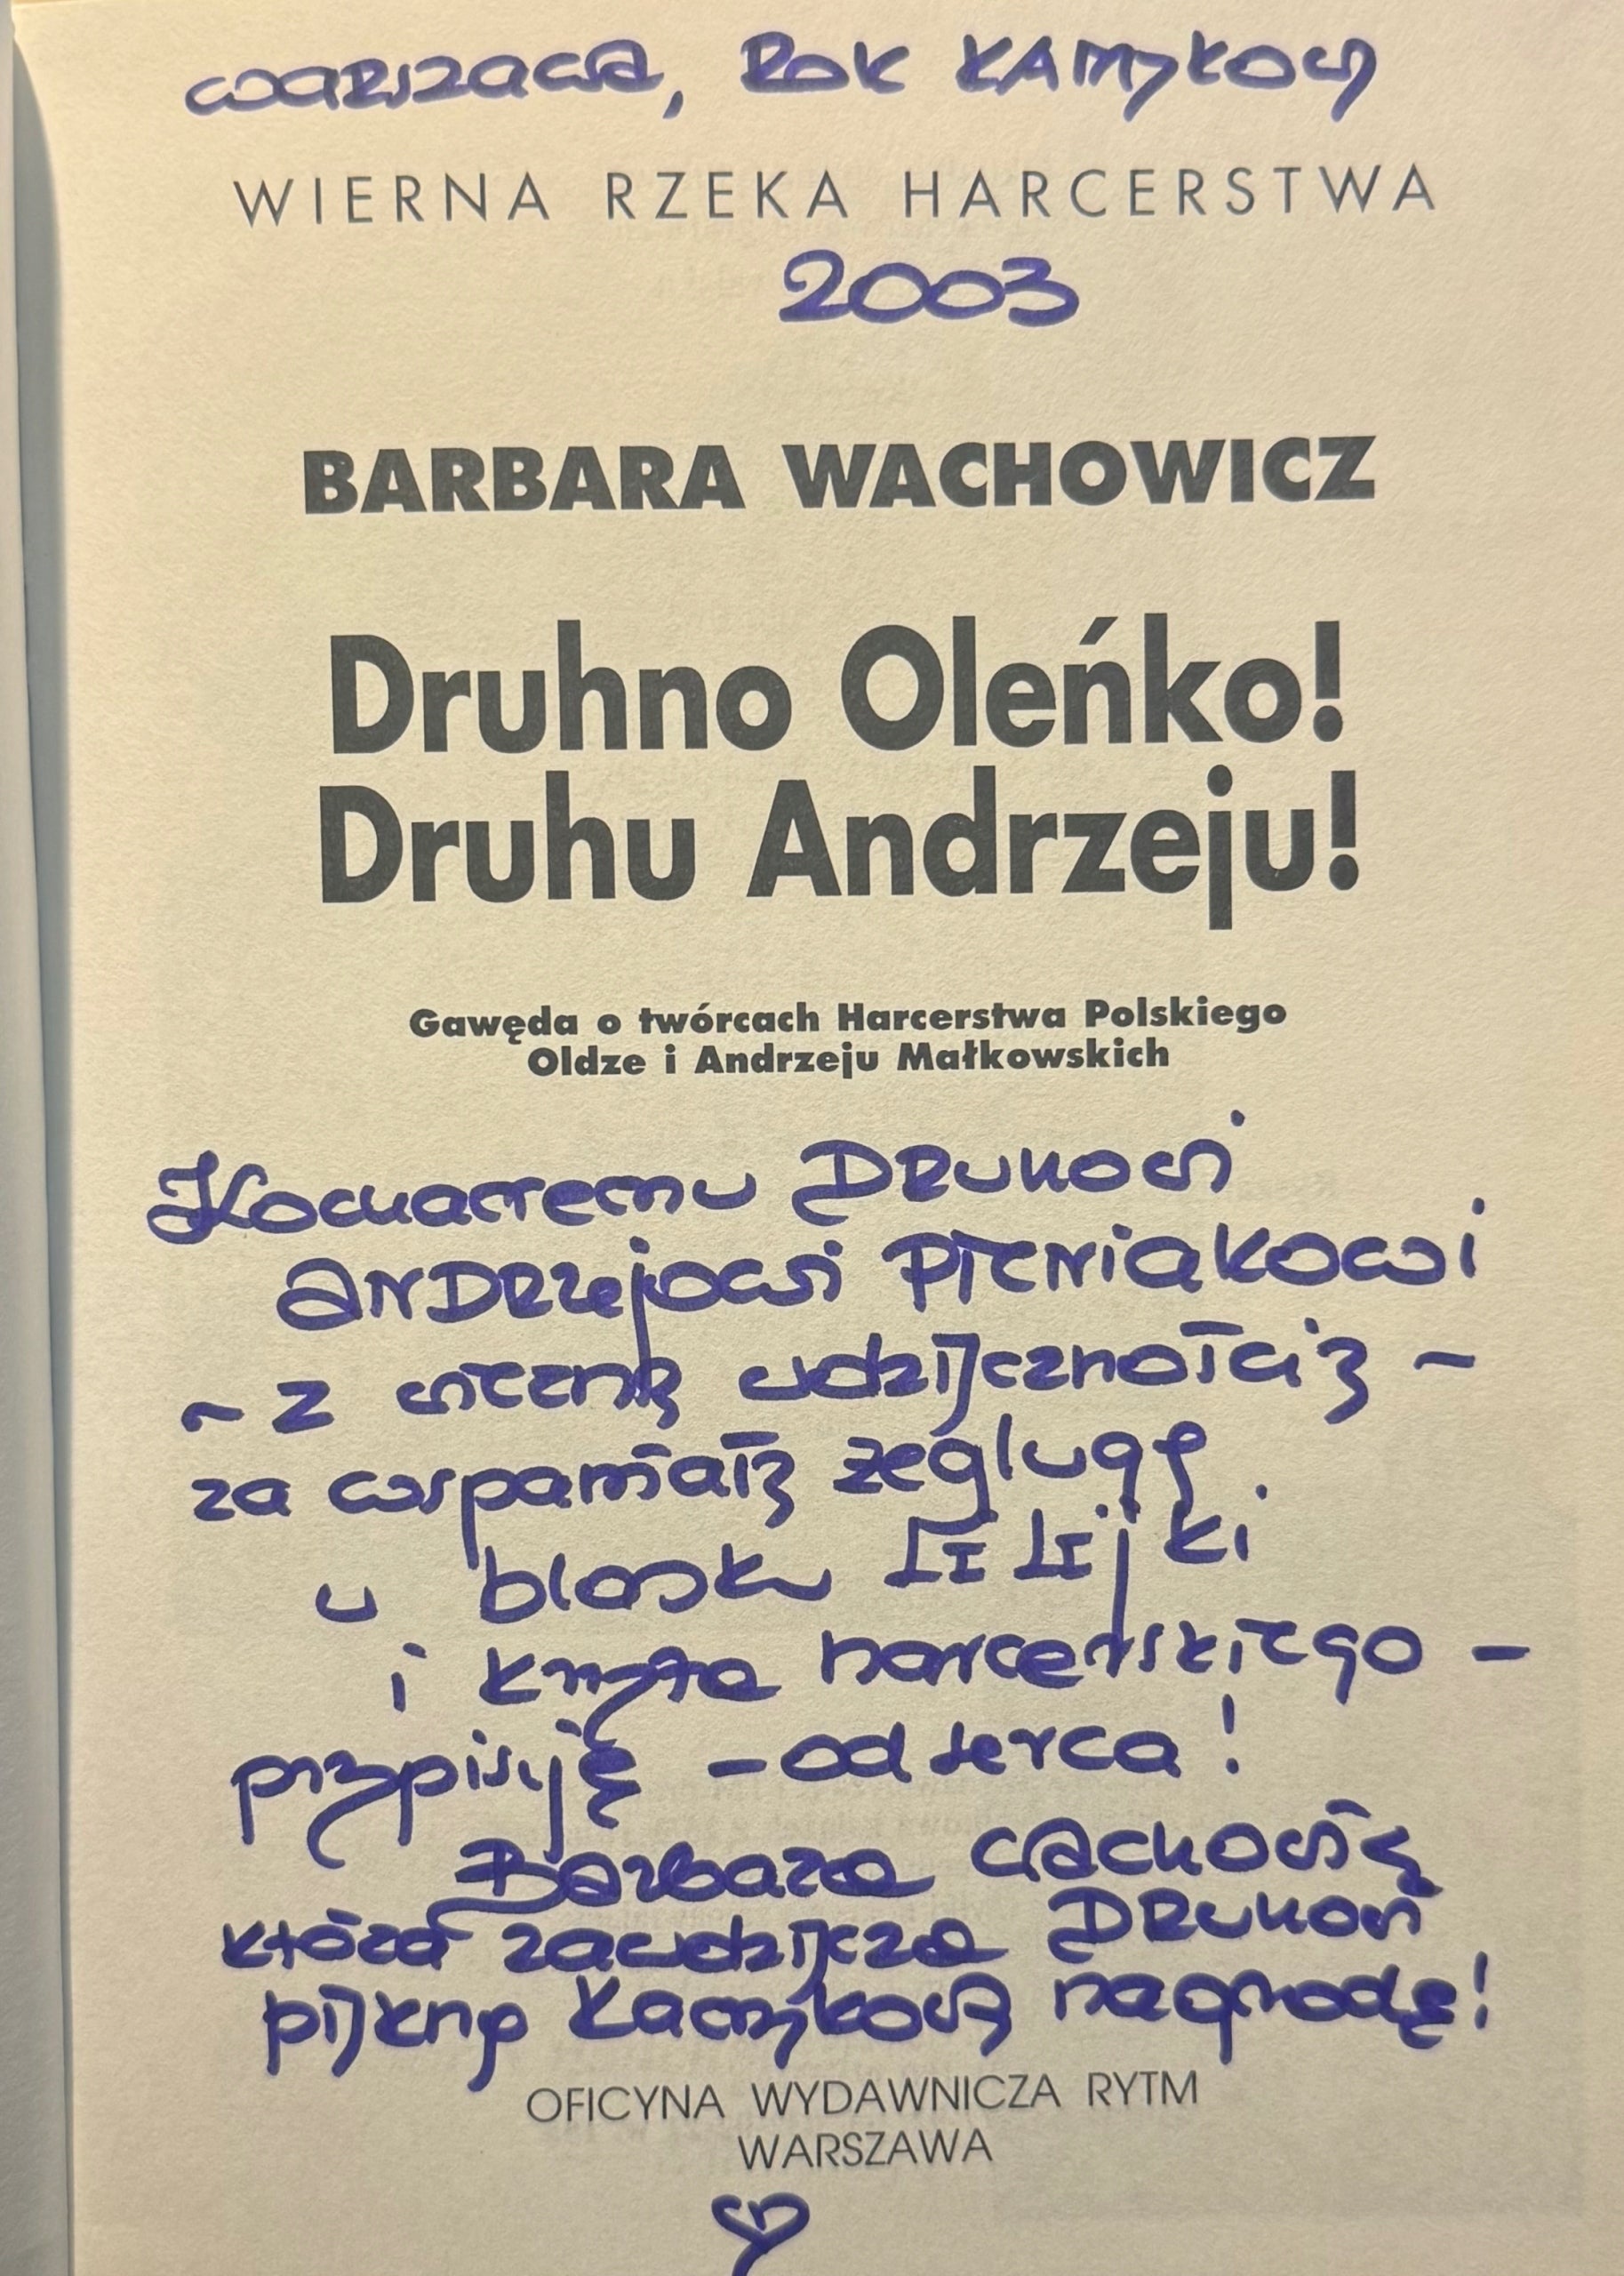 Warszawa, Rok Kamykowy
WIERNA RZEKA HARCERSTWA
2003
BARBARA WACHOWICZ
Druhno Oleńko!
Druhu Andrzeju!
Gawęda o twórcach Harcerstwa Polskiego
Oldze i Andrzeju Małkowskich
Kochanemu Druhowi
Andrzejowi Pieniakowi
- z wieczną wdzięcznością -
za wspaniałą żeglugę
w blasku Lilijki
i Krzyża harcerskiego -
przypisuję - od serca!
Barbara Wachowicz
która zawdzięcza Druhowi
piękną Kamykową nagrodę!
OFICYNA WYDAWNICZA RYTM
WARSZAWA